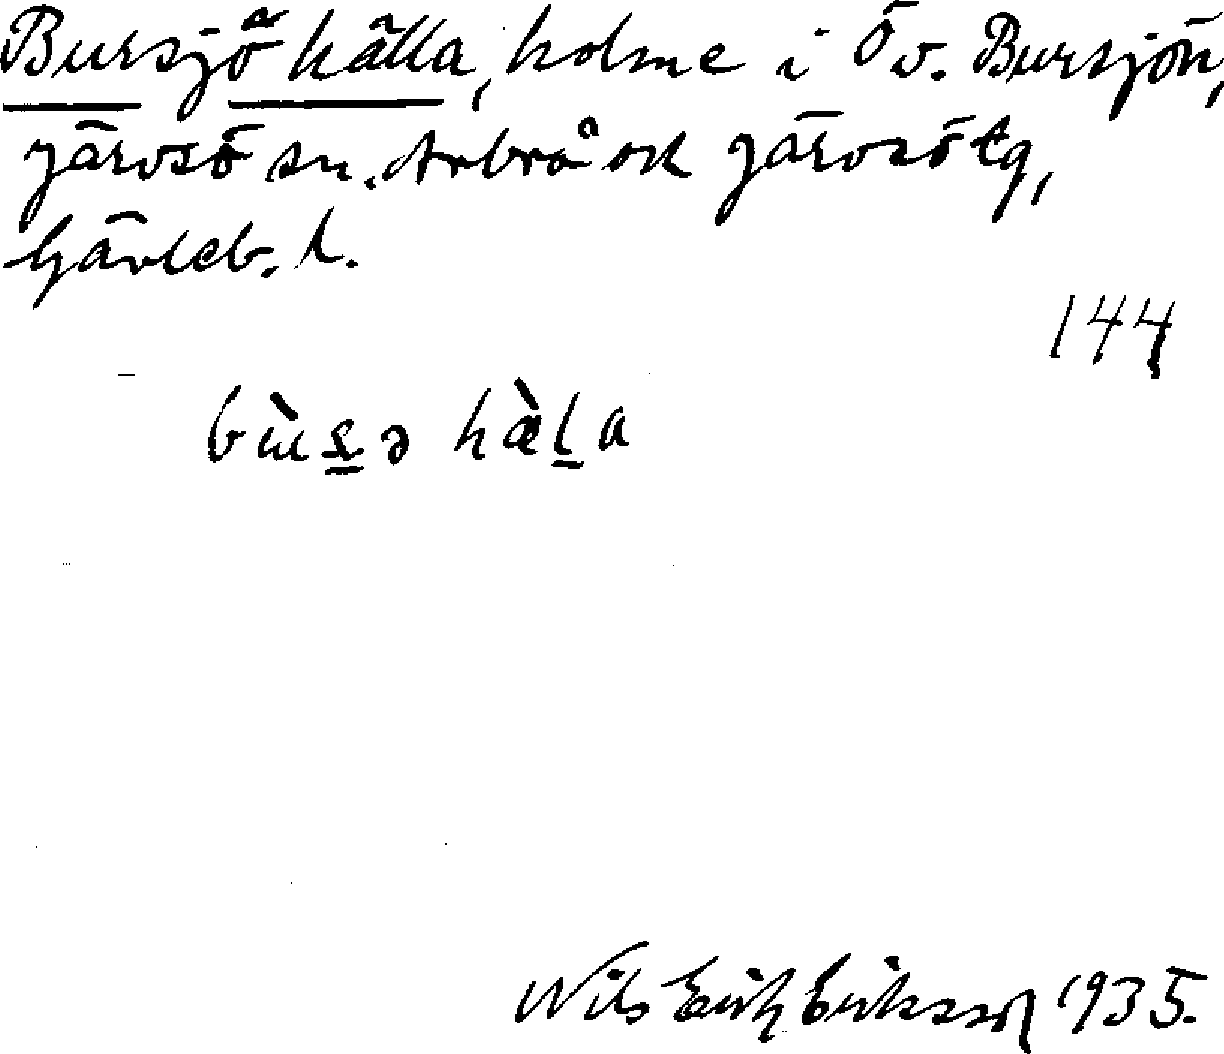 Bursjö hälla, holme i Öv. Bursjön,
Järvsö sn. Arbrå och Järvsö tg,
Gävleb. l.
144
bùs̲ə hæ̀l̲a
Nils Erik Eriksson 1935.